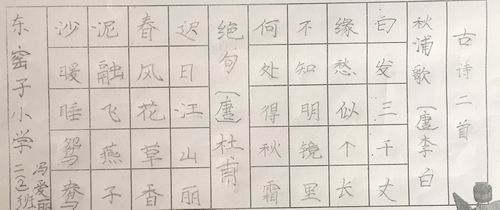 古诗二首
秋浦歌(唐)李白
白发三千丈
缘愁似个长
不知明镜里
何处得秋霜
绝句(唐)杜甫
迟日江山丽
春风花草香
泥融飞燕子
沙暖睡鸳鸯
东窑子小学
班
冯爱丽